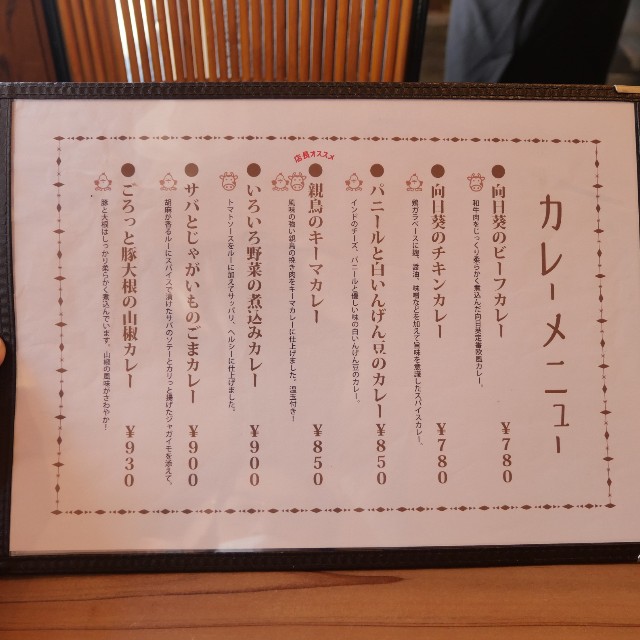 カレーメニュー
●向日葵のビーフカレー ￥780
和牛肉をじっくり柔らかく煮込んだ向日葵定番欧風カレー。
●向日葵のチキンカレー ￥780
鶏ガラベースに麹、醤油、味噌などを加えて旨味を意識したスパイスカレー。
●パニールと白いんげん豆のカレー ￥850
インドのチーズ、パニールと優しい味の白いんげん豆のカレー。
店長オススメ
●親鳥のキーマカレー ￥850
風味の強い親鳥の挽き肉をキーマカレーに仕上げました。温玉付き！
●いろいろ野菜の煮込みカレー ￥900
トマトソースをルーに加えてサッパリ、ヘルシーに仕上げました。
●サバとじゃがいものごまカレー ￥900
胡麻が香るルーにスパイスで漬けたサバのソテーとカリっと揚げたジャガイモを添えて。
●ごろっと豚大根の山椒カレー ￥930
豚と大根はしっかり柔らかく煮込んでいます。山椒の風味がさわやか！